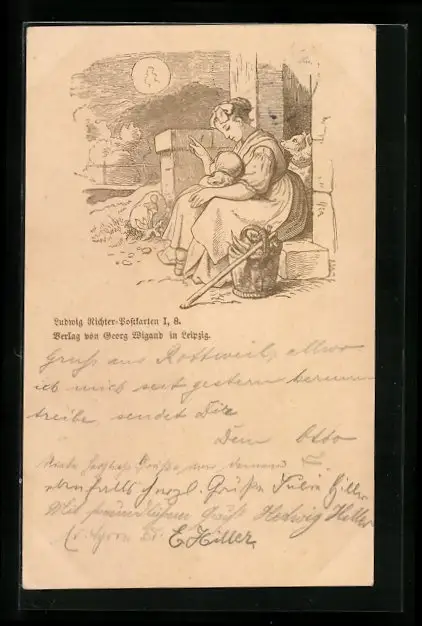 Ludwig Richter-Postkarten I, 8.
Verlag von Georg Wigand in Leipzig.
Gruss aus Rottweil, allwo
ich mich seit gestern herum-
treibe sendet Dir
Dein Otto
Grüße
ebenfalls herzl. Grüße Julie Hiller
Mit freundlichem Gruß Hedwig Hiller
E. Hiller